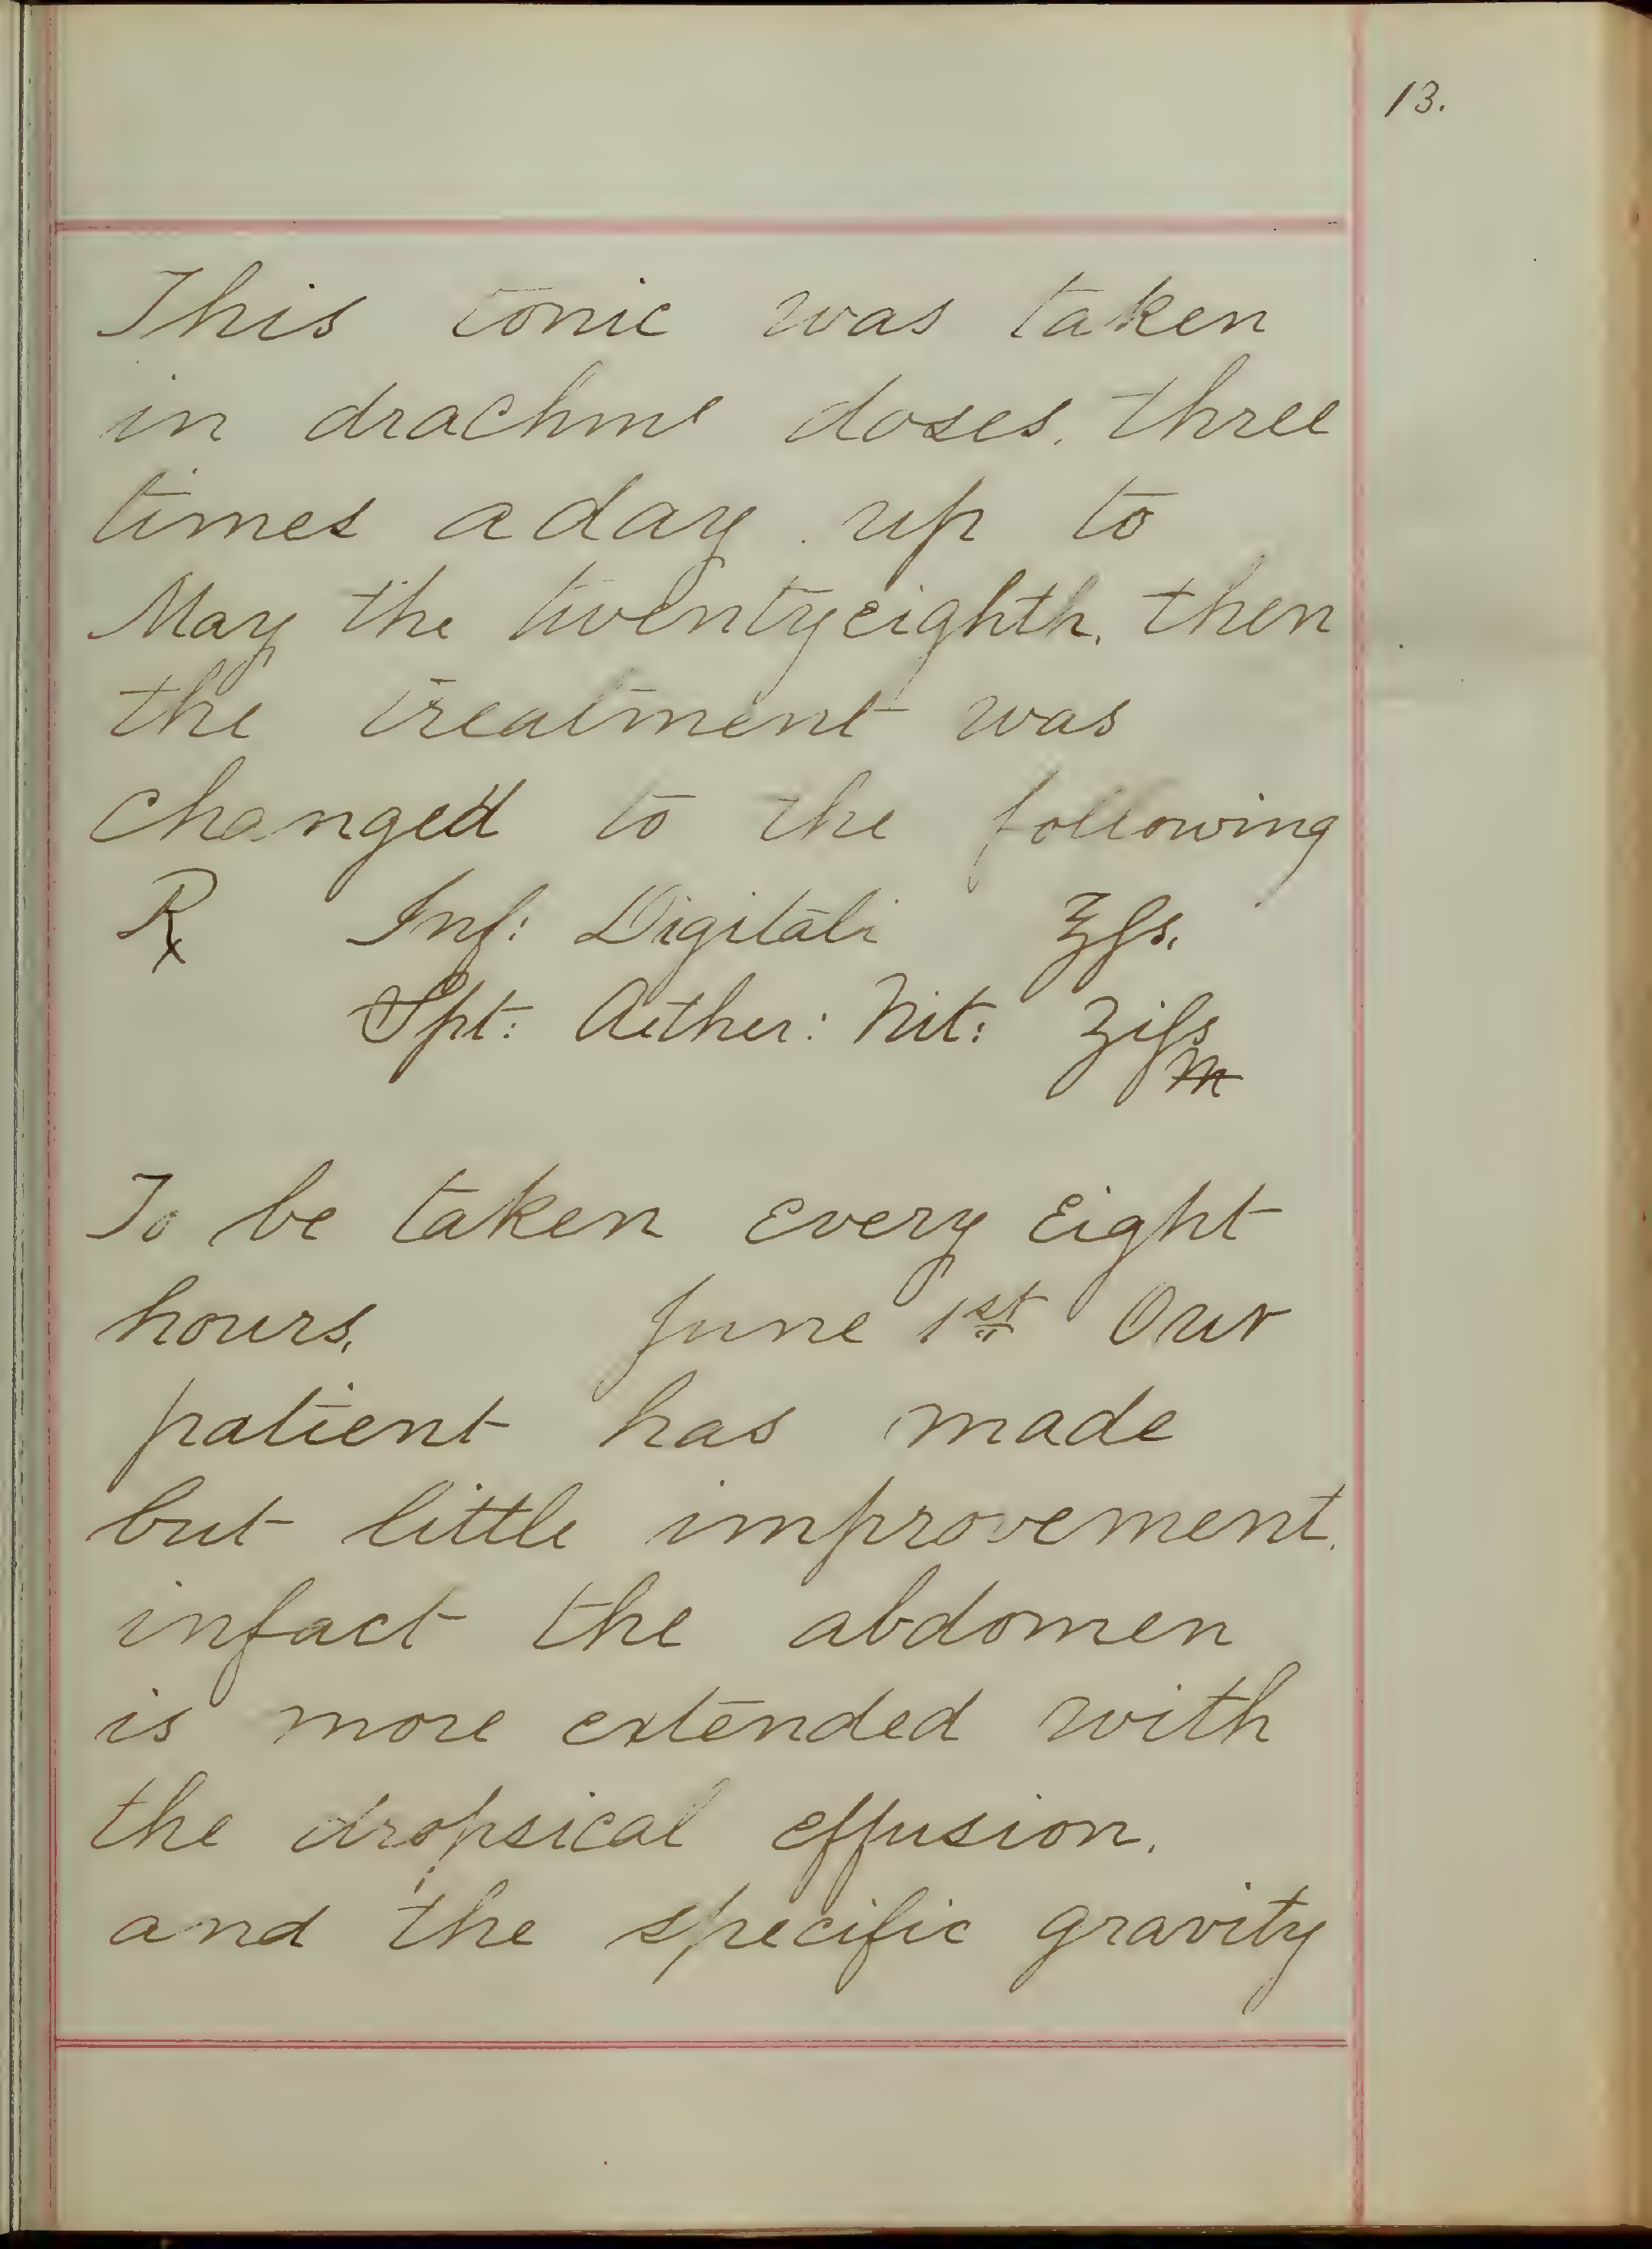 13.
This tonic was taken
in drachme doses. three
times a day. up to
May the twentyeighth. then
the treatment was
changed to the following
℞ Inf: Digitali ℥ſs.
Spt: Aether: Nit: ʒiſs
M
To be taken every eight
hours. June 1st Our
patient has made
but little improvement.
infact the abdomen
is more extended with
the dropsical effusion.
and the specific gravity